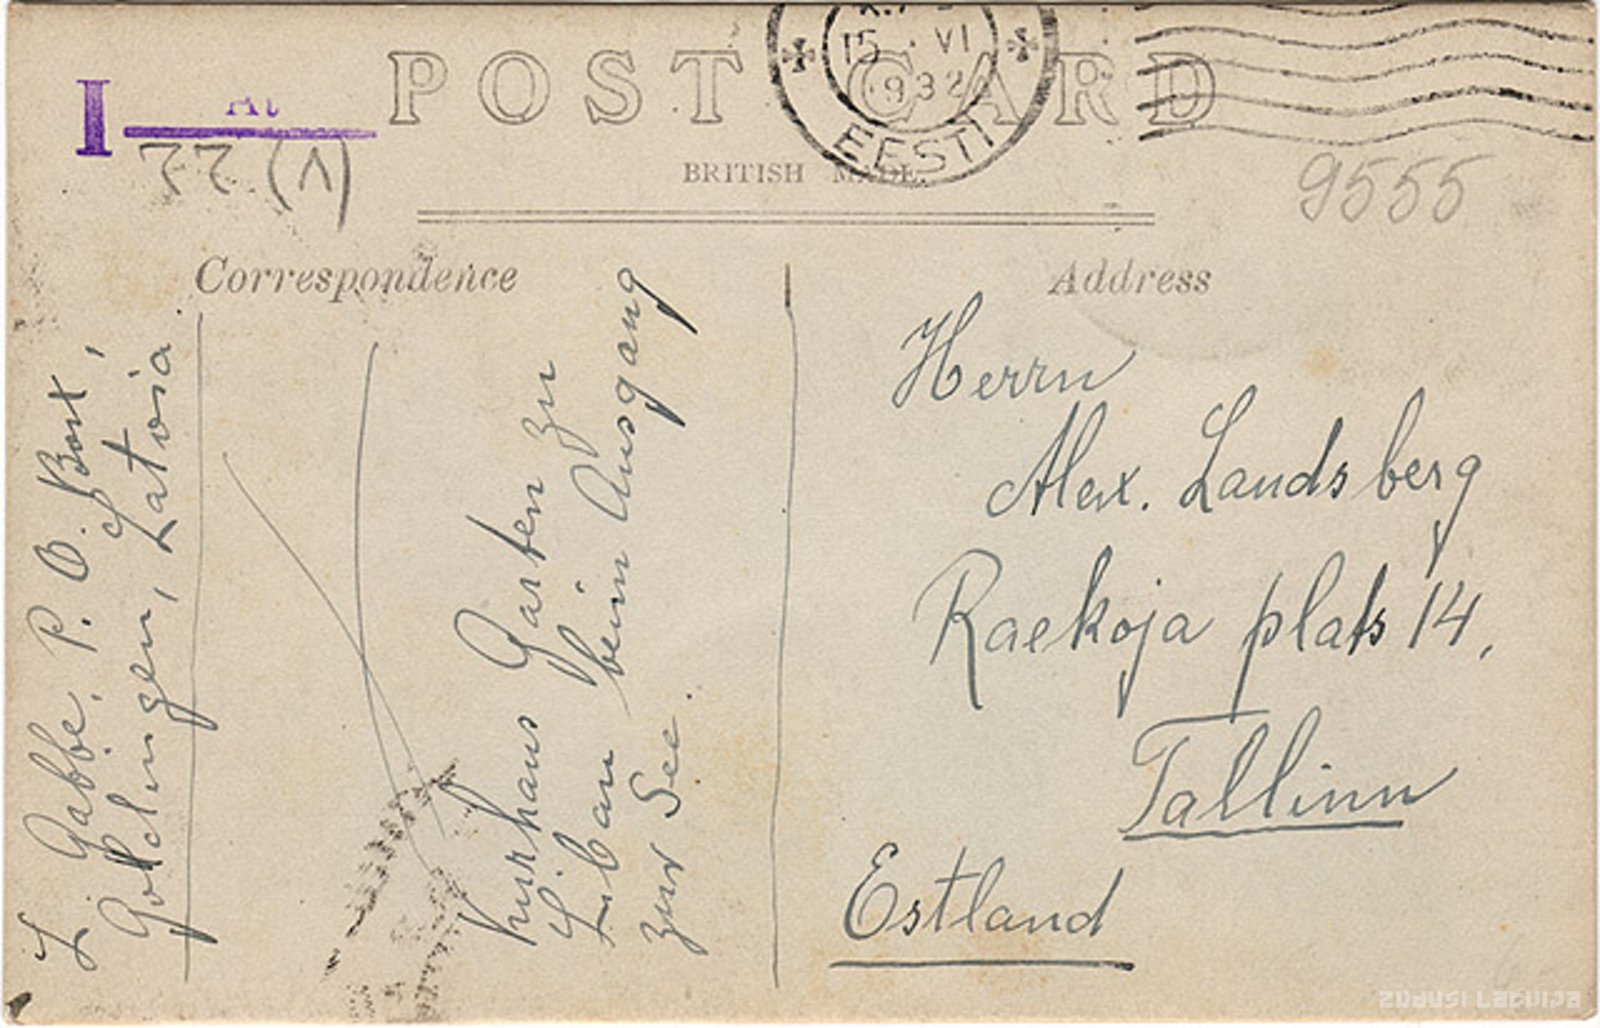 POST CARD
BRITISH MADE.
15 . VI
1932
EESTI
I
At
22 (V)
9555
Correspondence
Address
L. Gabbe, P. O. Box 1,
Goldingen, Latvia
Kurhaus Garten zu
Libau beim Ausgang
zur See.
Herrn
Alex. Landsberg
Raekoja plats 14,
Tallinn
Estland
ZUDUSI LATVIJA